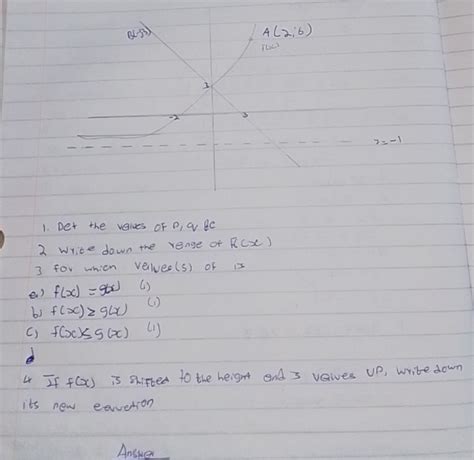 A(2;6)
3
-2
3
1. Det the values of p, q & c
2 write down the range of R(x)
3 for which values(s) of is
a) f(x) = g(x) (1)
b) f(x) ≥ g(x) (1)
c) f(x) ≤ g(x) (1)
d
4 If f(x) is shifted to the height and 3 values up, write down
its new equation
Answer